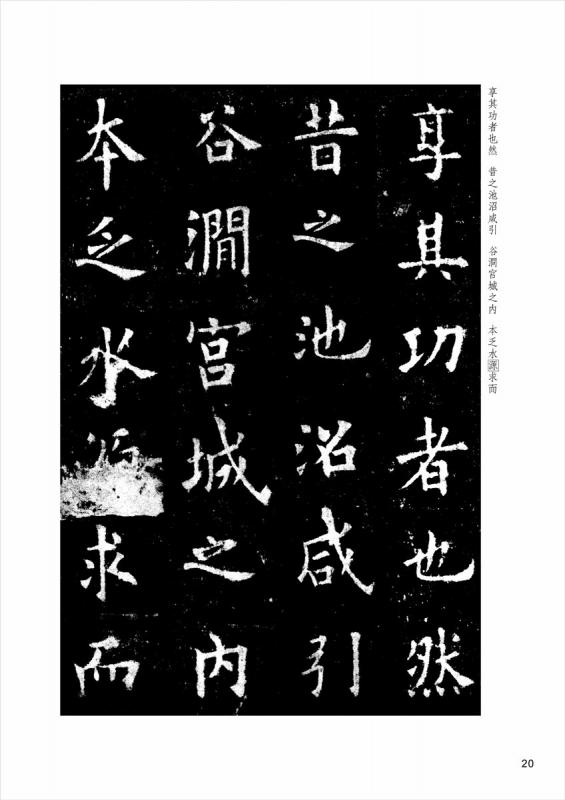 享其功者也然
昔之池沼咸引
谷澗宮城之内
本乏水求而
享其功者也然　昔之池沼咸引　谷澗宮城之内　本乏水源求而
20